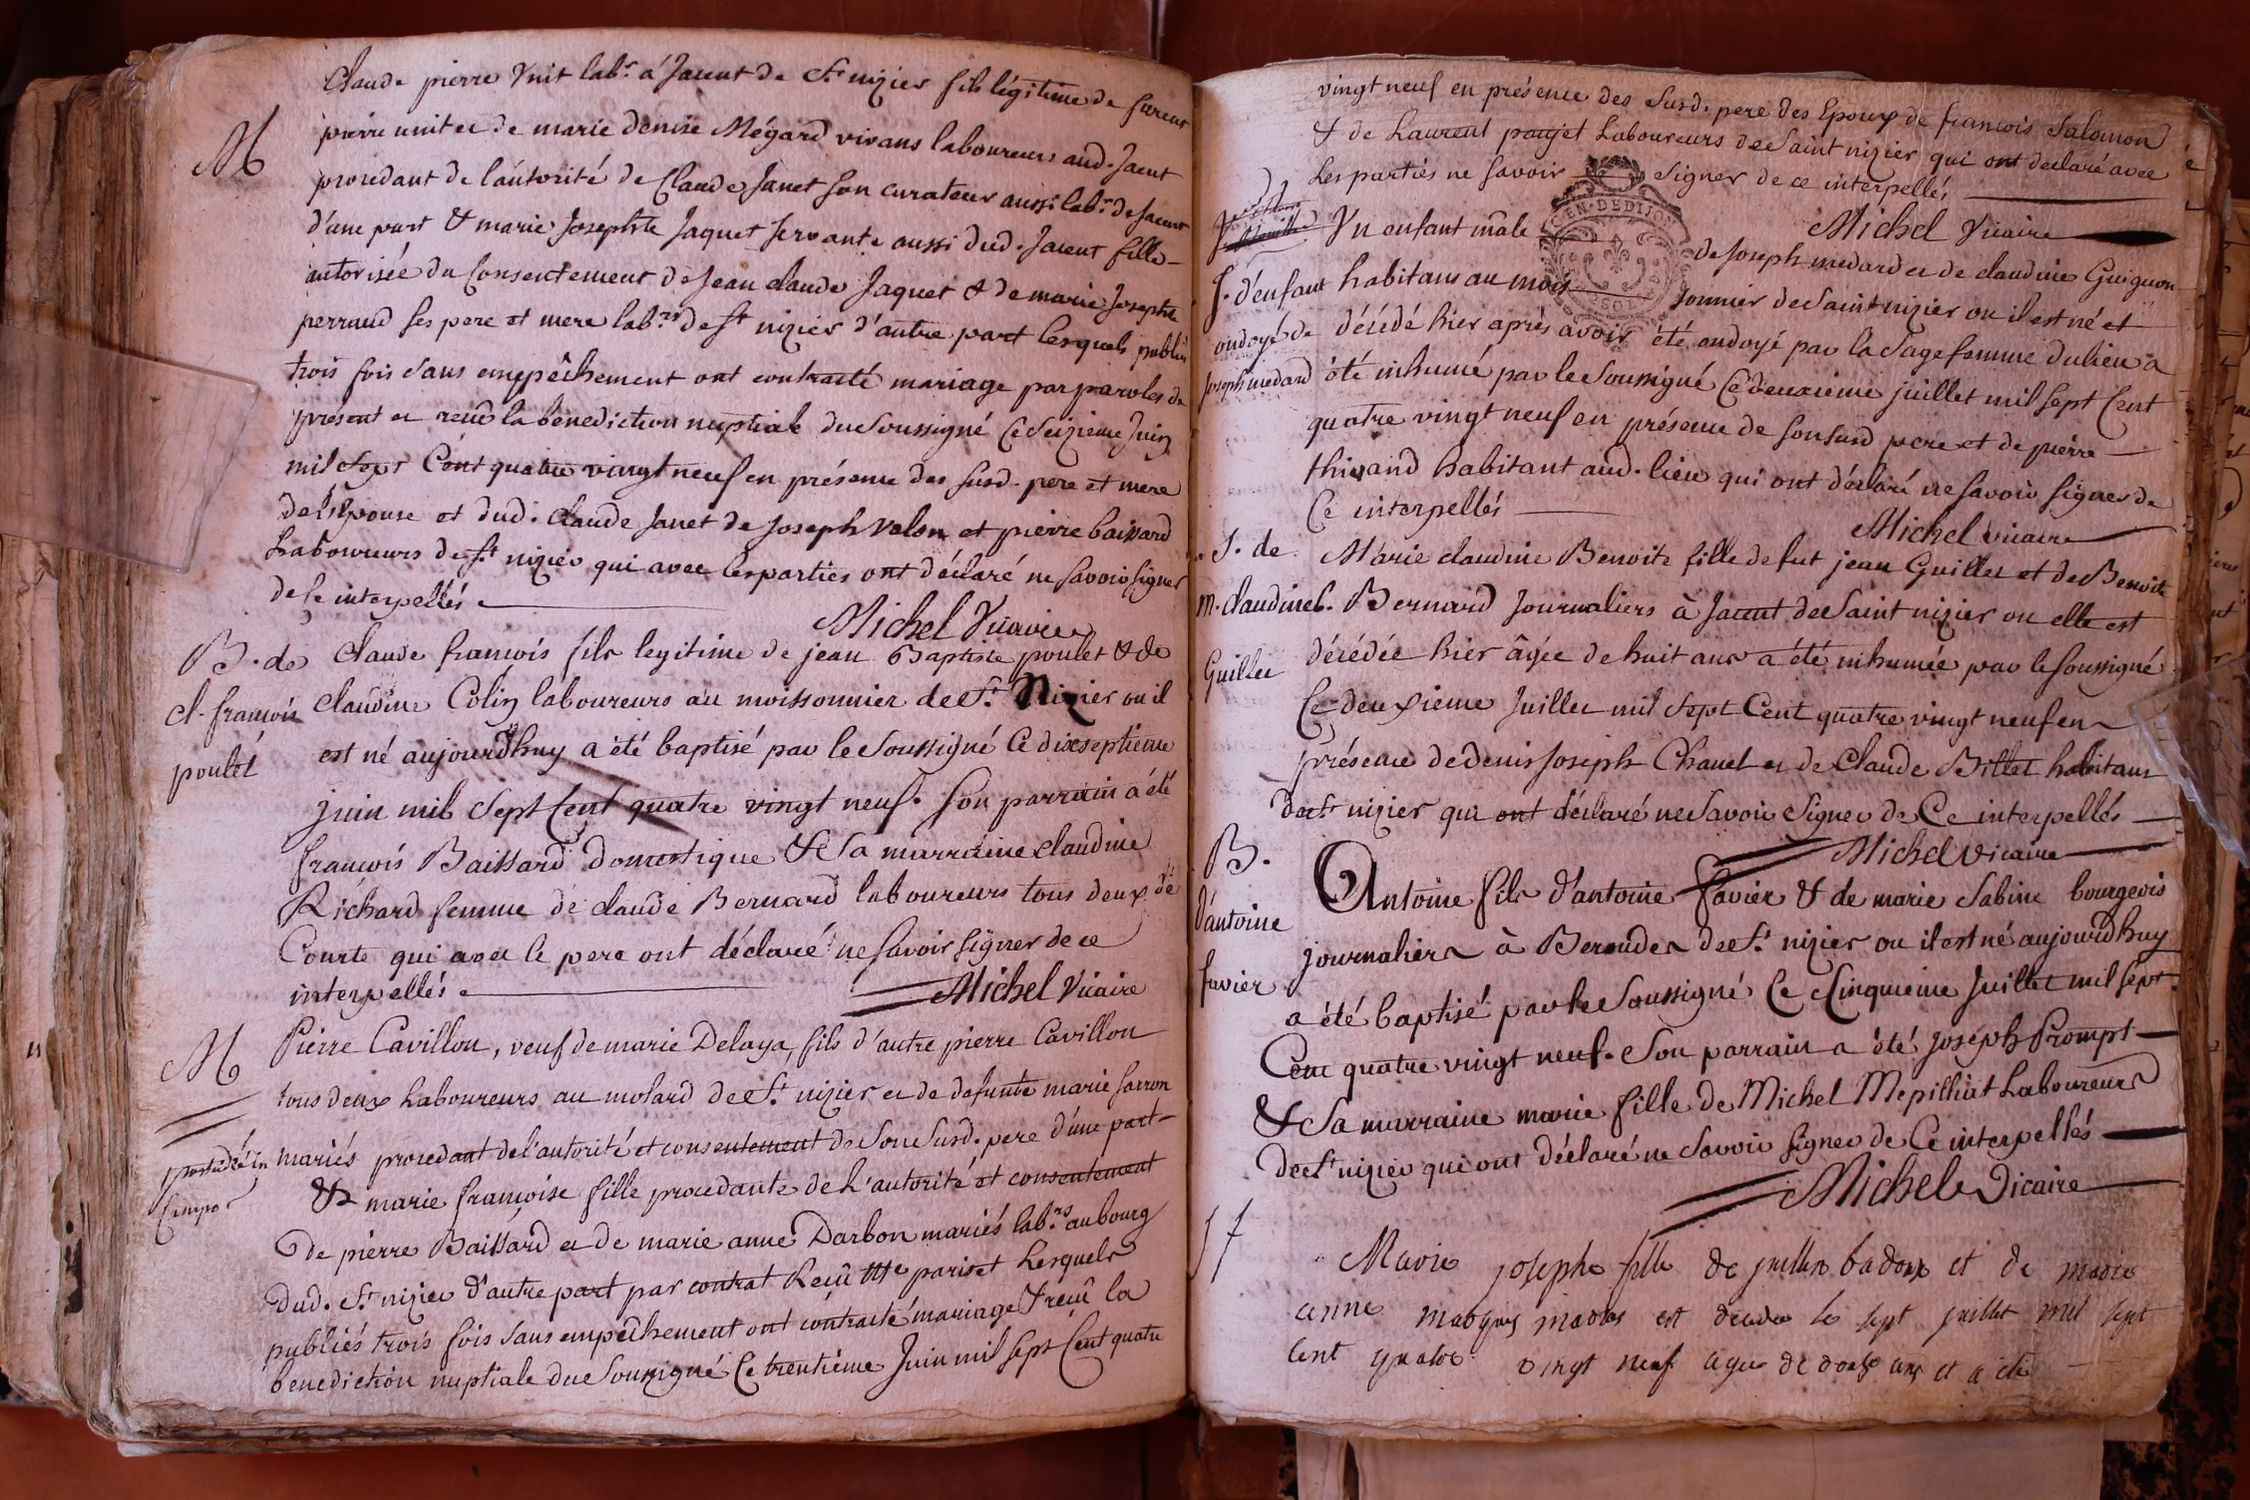 Claude pierre Vnit lab.r a Jaient de St nizier fils légitime de fureur
M
pierre unit et de marie denise Mégard vivans laboureurs aud. Jaent
procedant de l'autorité de Claude Janet son curateur aussi lab.r de Jaient
d'une part & marie Josephte Jaquet servante aussi dud. Jaient fille
autorisée du Consentement de Jean claude Jaquet & de marie Josephte
perraud ses pere et mere lab.rs de St nizier d'autre part lesquels publiés
trois fois sans empêchement ont contracté mariage par paroles de
présent et recû la bénediction nuptiale du Soussigné Ce Seizieme Juin
mil Sept Cent quatre vingt neuf en présence des susd. pere et mere
de l'Epouse et dud. Claude Janet de Joseph Valon et pierre baissard
Laboureurs de St nizier qui avec les parties ont déclaré ne savoir signer
de Ce interpellés
Michel Vicaire
B. de
Claude francois fils legitime de jean Baptiste poulet & de
cl. francois
claudine Colin laboureurs au moissonnier de St. Nizier ou il
poulet
est né aujourdhuy a été baptisé par le Soussigné Ce dixseptieme
juin mil Sept Cent quatre vingt neuf. Son parrain a été
francois Baissard Domestique & Sa marraine claudine
Richard femme de claude Bernard laboureurs tous deux de
Courte qui avec le pere ont déclaré ne savoir signer de ce
interpellés.
Michel Vicaire
M
Pierre Cavillon, veuf de marie Delaya, fils d'autre pierre Cavillon
tous deux Laboureurs au molard de St. nizier et de defunte marie farron
mariés procedant de l'autorité et consentement de Son Susd. pere d'une part
& marie francoise fille procedante de L'autorité et consentement
De pierre Baissard et de marie anne Darbon mariés lab.rs au bourg
Dud. St nizier d'autre part par contrat Recû Me pariset Lesquels
publiés trois fois sans empêchement ont contracté mariage & recû la
benediction nuptiale du Soussigné Ce trentième Juin mil sept Cent quatre
vingt neuf en présence des Susd. pere des Epoux de francois Salomon
& de Laurent poujet Laboureurs de Saint nizier qui ont declaré avec
Les partiés ne savoir signer de ce interpellés
Michel Vicaire
EN. DE DIJON
Vn enfant mâle de Joseph medard et de claudine Guignon
J. d'enfant
habitans au moissonnier de Saint nizier ou il est né et
ondoyé de
décédé hier aprés avoir été ondoyé par la Sagefemme du lieu a
Joseph medard
été inhumé par le Soussigné Ce deuxieme juillet mil sept Cent
quatre vingt neuf en présence de son susd pere et de pierre
thivand habitant aud. lieu qui ont déclaré ne savoir signer de
Ce interpellés
Michel vicaire
S. de
Marie claudine Benoite fille de fut jean Guillet et de Benoite
m. claudine b.
Bernard Journaliers à Jaient de Saint nizier ou elle est
Guillet
décédée hier âgée de huit ans a été inhumée par le soussigné
Ce deuxieme Juillet mil Sept Cent quatre vingt neuf en
présence de denis Joseph Chanel et de Claude Billet habitans
de St nizier qui ont déclaré ne Savoir Signer de Ce interpellés
Michel vicaire
B.
Antoine fils d'antoine favier & de marie Sabine bourgeois
d'antoine
journaliers à Beroudes de St. nizier ou il est né aujourdhuy
favier
a été baptisé par le Soussigné Ce Cinquieme Juillet mil sept
Cent quatre vingt neuf. Son parrain a été joseph Prompt
& Sa marraine marie fille de Michel Mepilliat Laboureurs
de St nizier qui ont déclaré ne Savoir signer de Ce interpellés
Michel Vicaire
Marie josephe fille de juillin badoux et de marie
anne est decedee le sept juillet mil sept
Cent quatre vingt neuf agee de douze ans et a été